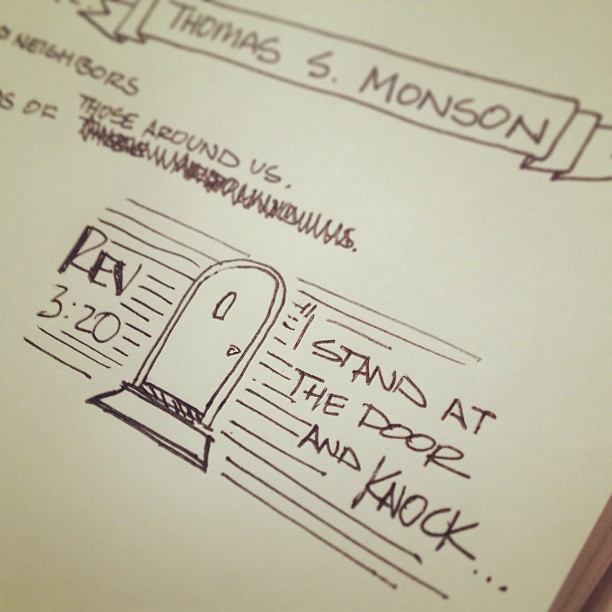 THOMAS S. MONSON
NEIGHBORS
OF THOSE AROUND US.
REV
3:20
"I STAND AT
THE DOOR
AND KNOCK...